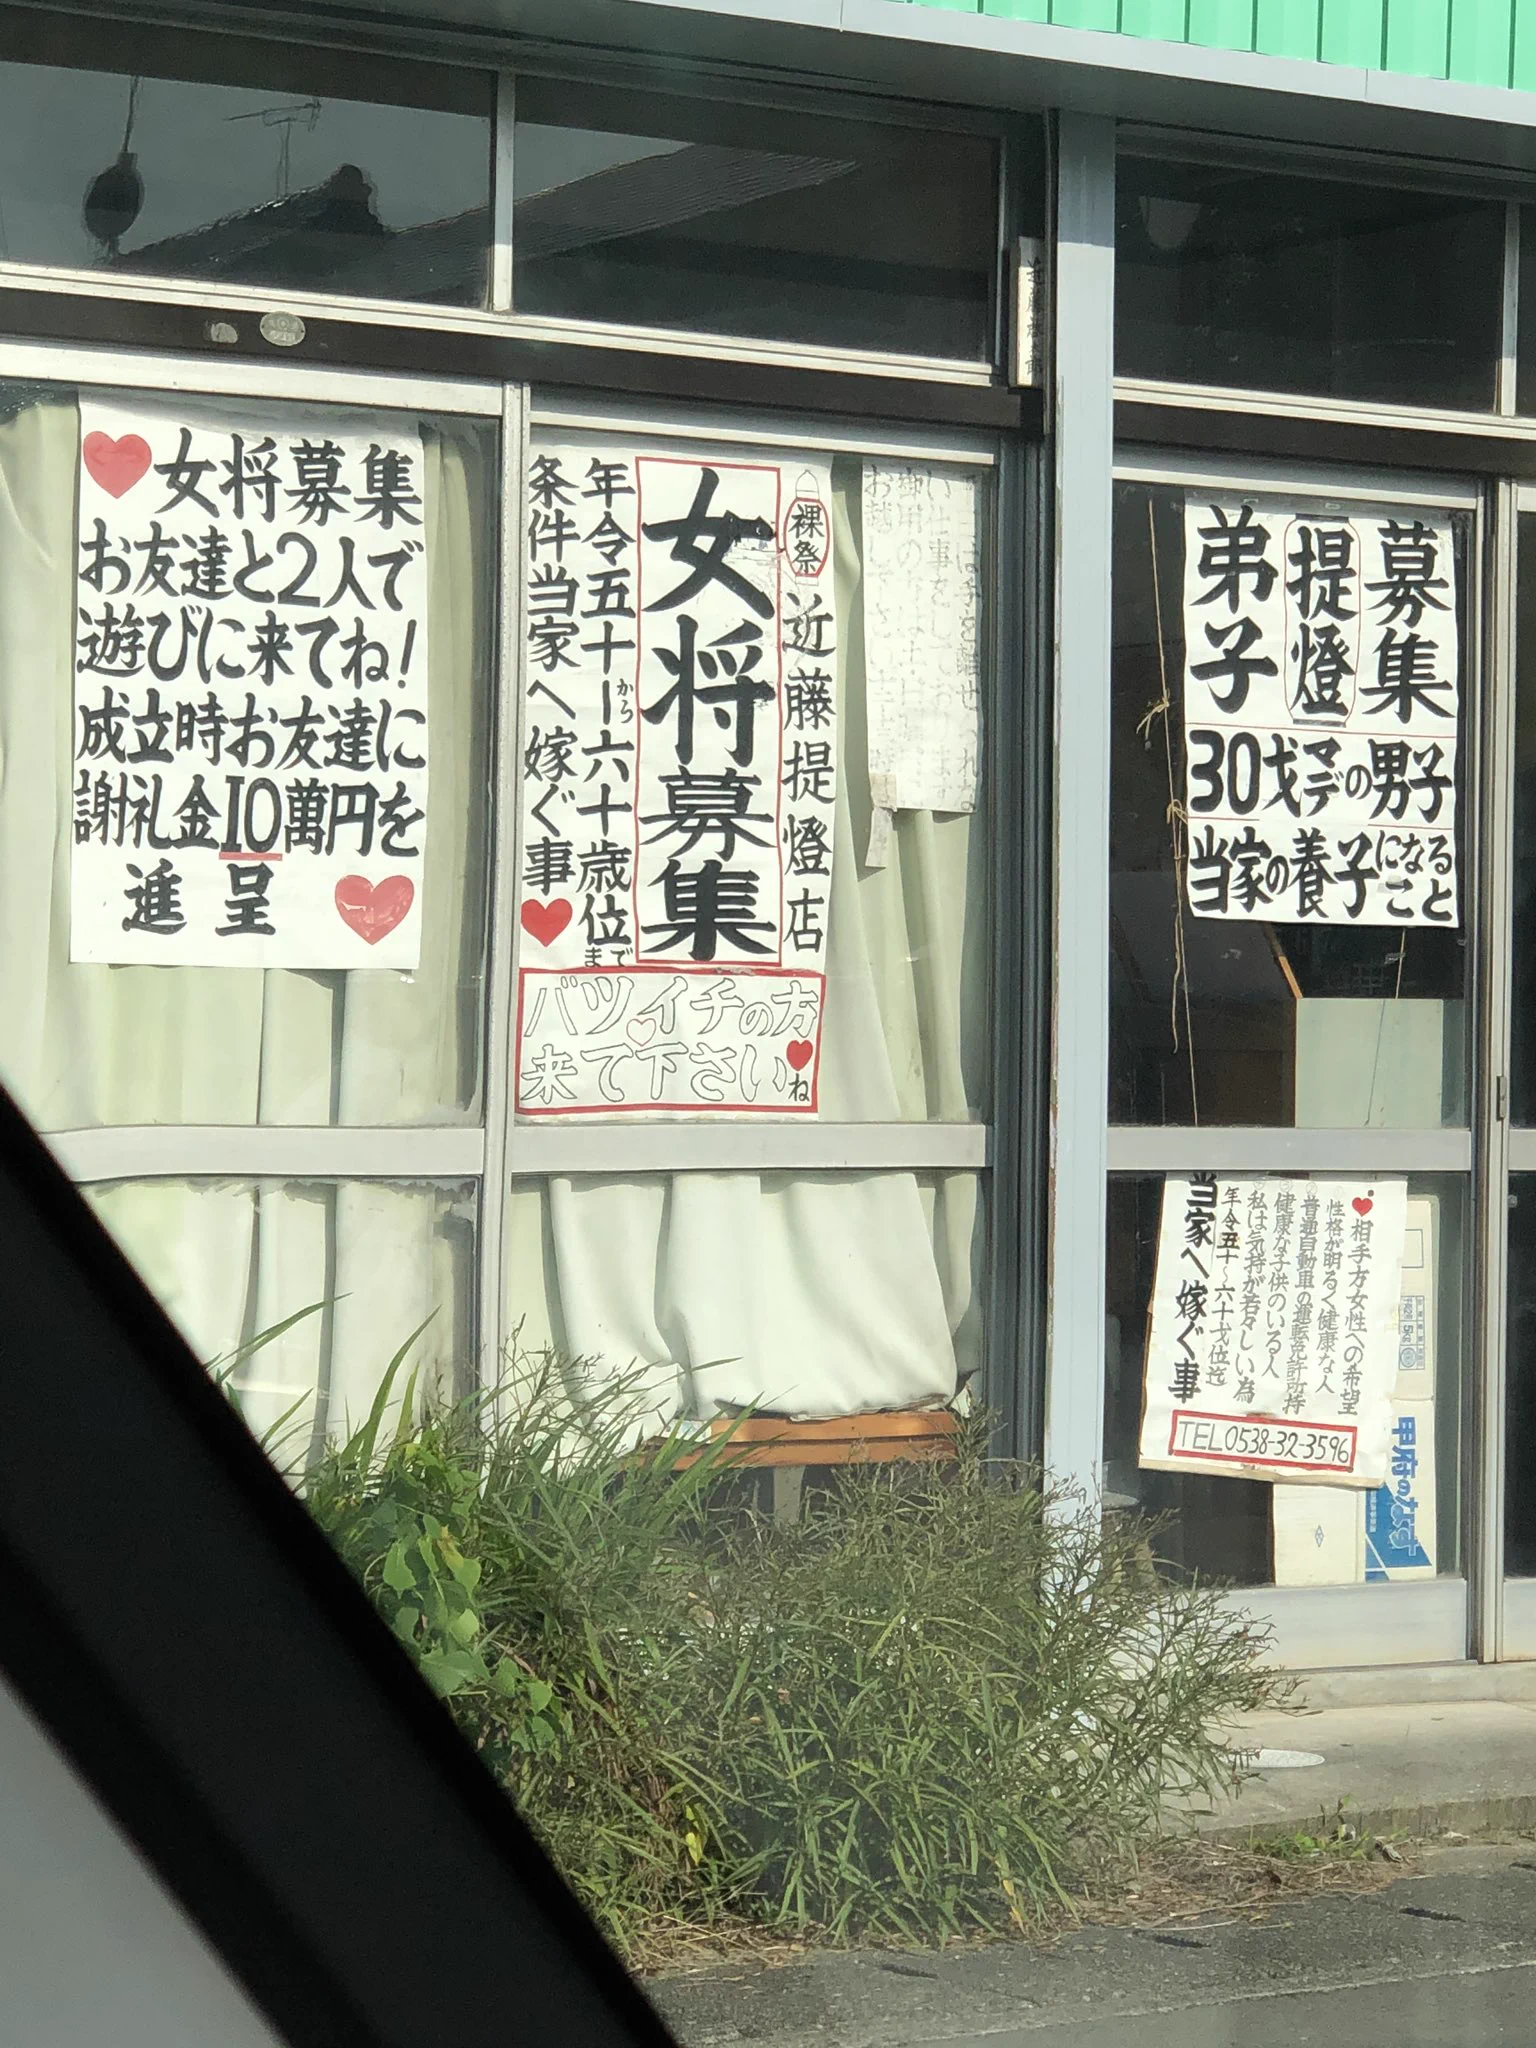 女将募集
お友達と2人で
遊びに来てね!
成立時お友達に
謝礼金10萬円を
進呈
裸祭
近藤提燈店
女将募集
年令五十から六十歳位まで
条件当家へ嫁ぐ事
バツイチの方
来て下さいね
お越し下さい
弟子
提燈
募集
30才マデの男子
当家の養子になること
相手方女性への希望
性格が明るく健康な人
普通自動車の運転免許所持
健康な子供のいる人
私は気持が若々しい為
年令五十~六十才位迄
当家へ嫁ぐ事
TEL0538-32-3596
甲府のなす